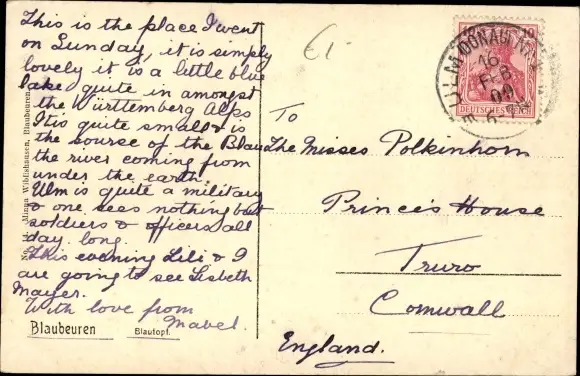 This is the place I went
on Sunday, it is simply
lovely it is a little blue
lake quite in amongst
the Württemberg Alps
It is quite small & is
the source of the Blau
the river coming from
under the earth.
Ulm is quite a military
& one sees nothing but
soldiers & officers all
day long.
This evening Lili & I
are going to see Lisbeth
Mayer.
With love from
Mabel.
Blaubeuren Blautopf.
Blaubeuren.
To
The Misses Polkinhorn
Prince's House
Truro
Cornwall
England.
10
DEUTSCHES REICH
ULM (DONAU)
16
FEB
09